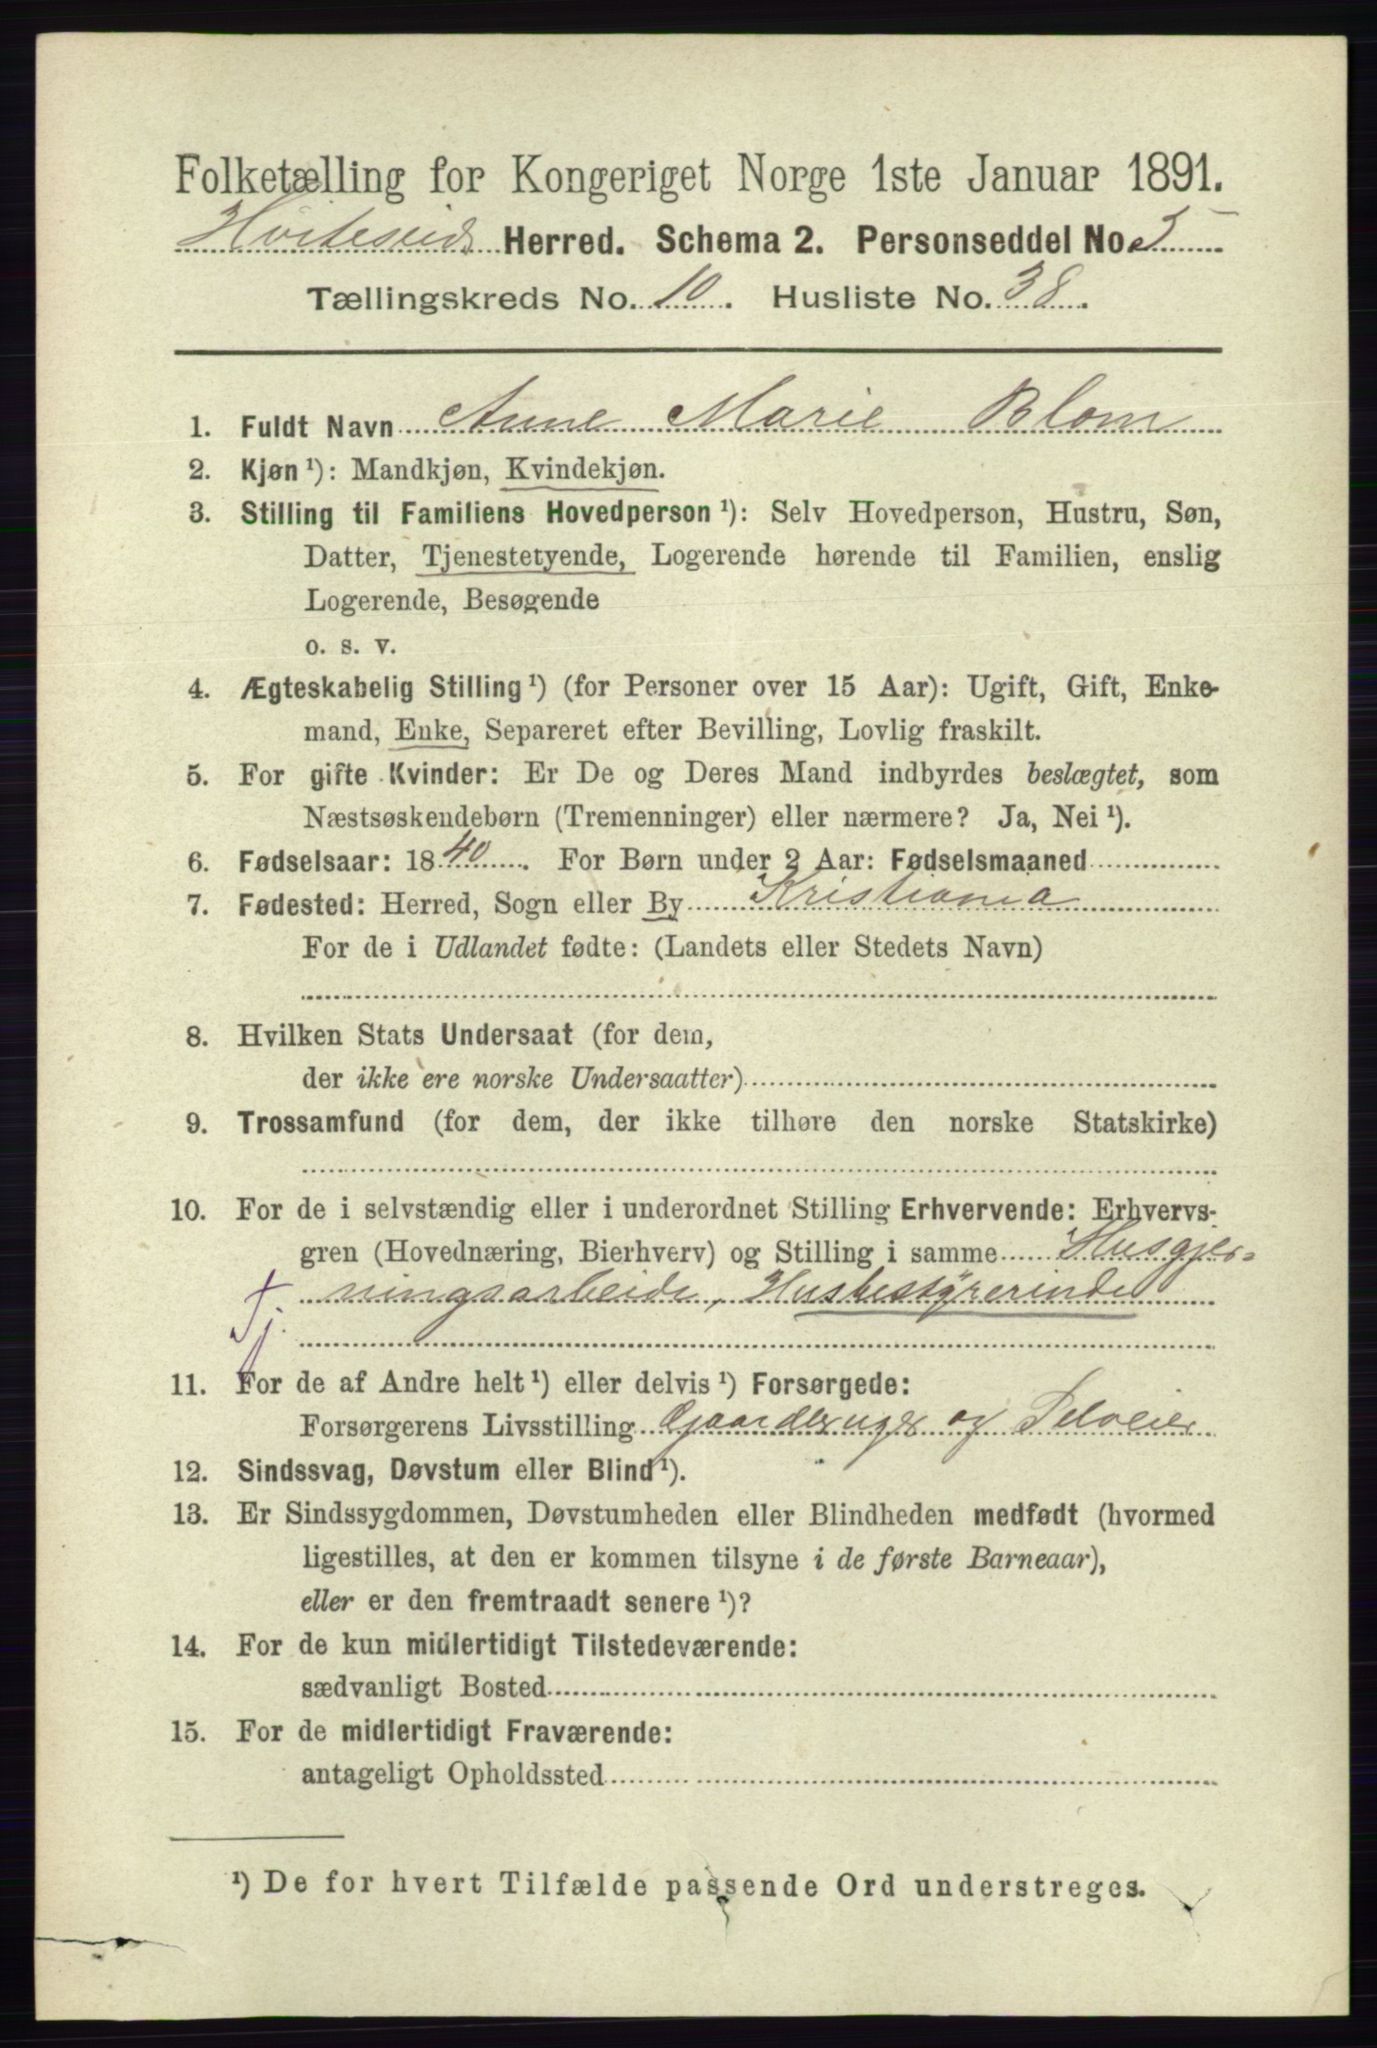 Folketælling for Kongeriget Norge 1ste Januar 1891.
Hviteseid Herred. Schema 2. Personseddel No. 5
Tællingskreds No. 10. Husliste No. 38.
1. Fuldt Navn Anne Marie Blom
2. Kjøn ¹): Mandkjøn, Kvindekjøn.
3. Stilling til Familiens Hovedperson ¹): Selv Hovedperson, Hustru, Søn,
Datter, Tjenestetyende, Logerende hørende til Familien, enslig
Logerende, Besøgende
o. s. v.
4. Ægteskabelig Stilling ¹) (for Personer over 15 Aar): Ugift, Gift, Enke-
mand, Enke, Separeret efter Bevilling, Lovlig fraskilt.
5. For gifte Kvinder: Er De og Deres Mand indbyrdes beslægtet, som
Næstsøskendebørn (Tremenninger) eller nærmere? Ja, Nei ¹).
6. Fødselsaar: 1840. For Børn under 2 Aar: Fødselsmaaned
7. Fødested: Herred, Sogn eller By Kristiania
For de i Udlandet fødte: (Landets eller Stedets Navn)
8. Hvilken Stats Undersaat (for dem,
der ikke ere norske Undersaatter)
9. Trossamfund (for dem, der ikke tilhøre den norske Statskirke)
10. For de i selvstændig eller i underordnet Stilling Erhvervende: Erhvervs-
gren (Hovednæring, Bierhverv) og Stilling i samme Husgjer-
ningsarbeide, Husbestyrerinde
Tj.
11. For de af Andre helt ¹) eller delvis ¹) Forsørgede:
Forsørgerens Livsstilling Gaardbruger og Selveier
12. Sindssvag, Døvstum eller Blind ¹).
13. Er Sindssygdommen, Døvstumheden eller Blindheden medfødt (hvormed
ligestilles, at den er kommen tilsyne i de første Barneaar),
eller er den fremtraadt senere ¹)?
14. For de kun midlertidigt Tilstedeværende:
sædvanligt Bosted
15. For de midlertidigt Fraværende:
antageligt Opholdssted
¹) De for hvert Tilfælde passende Ord understreges.